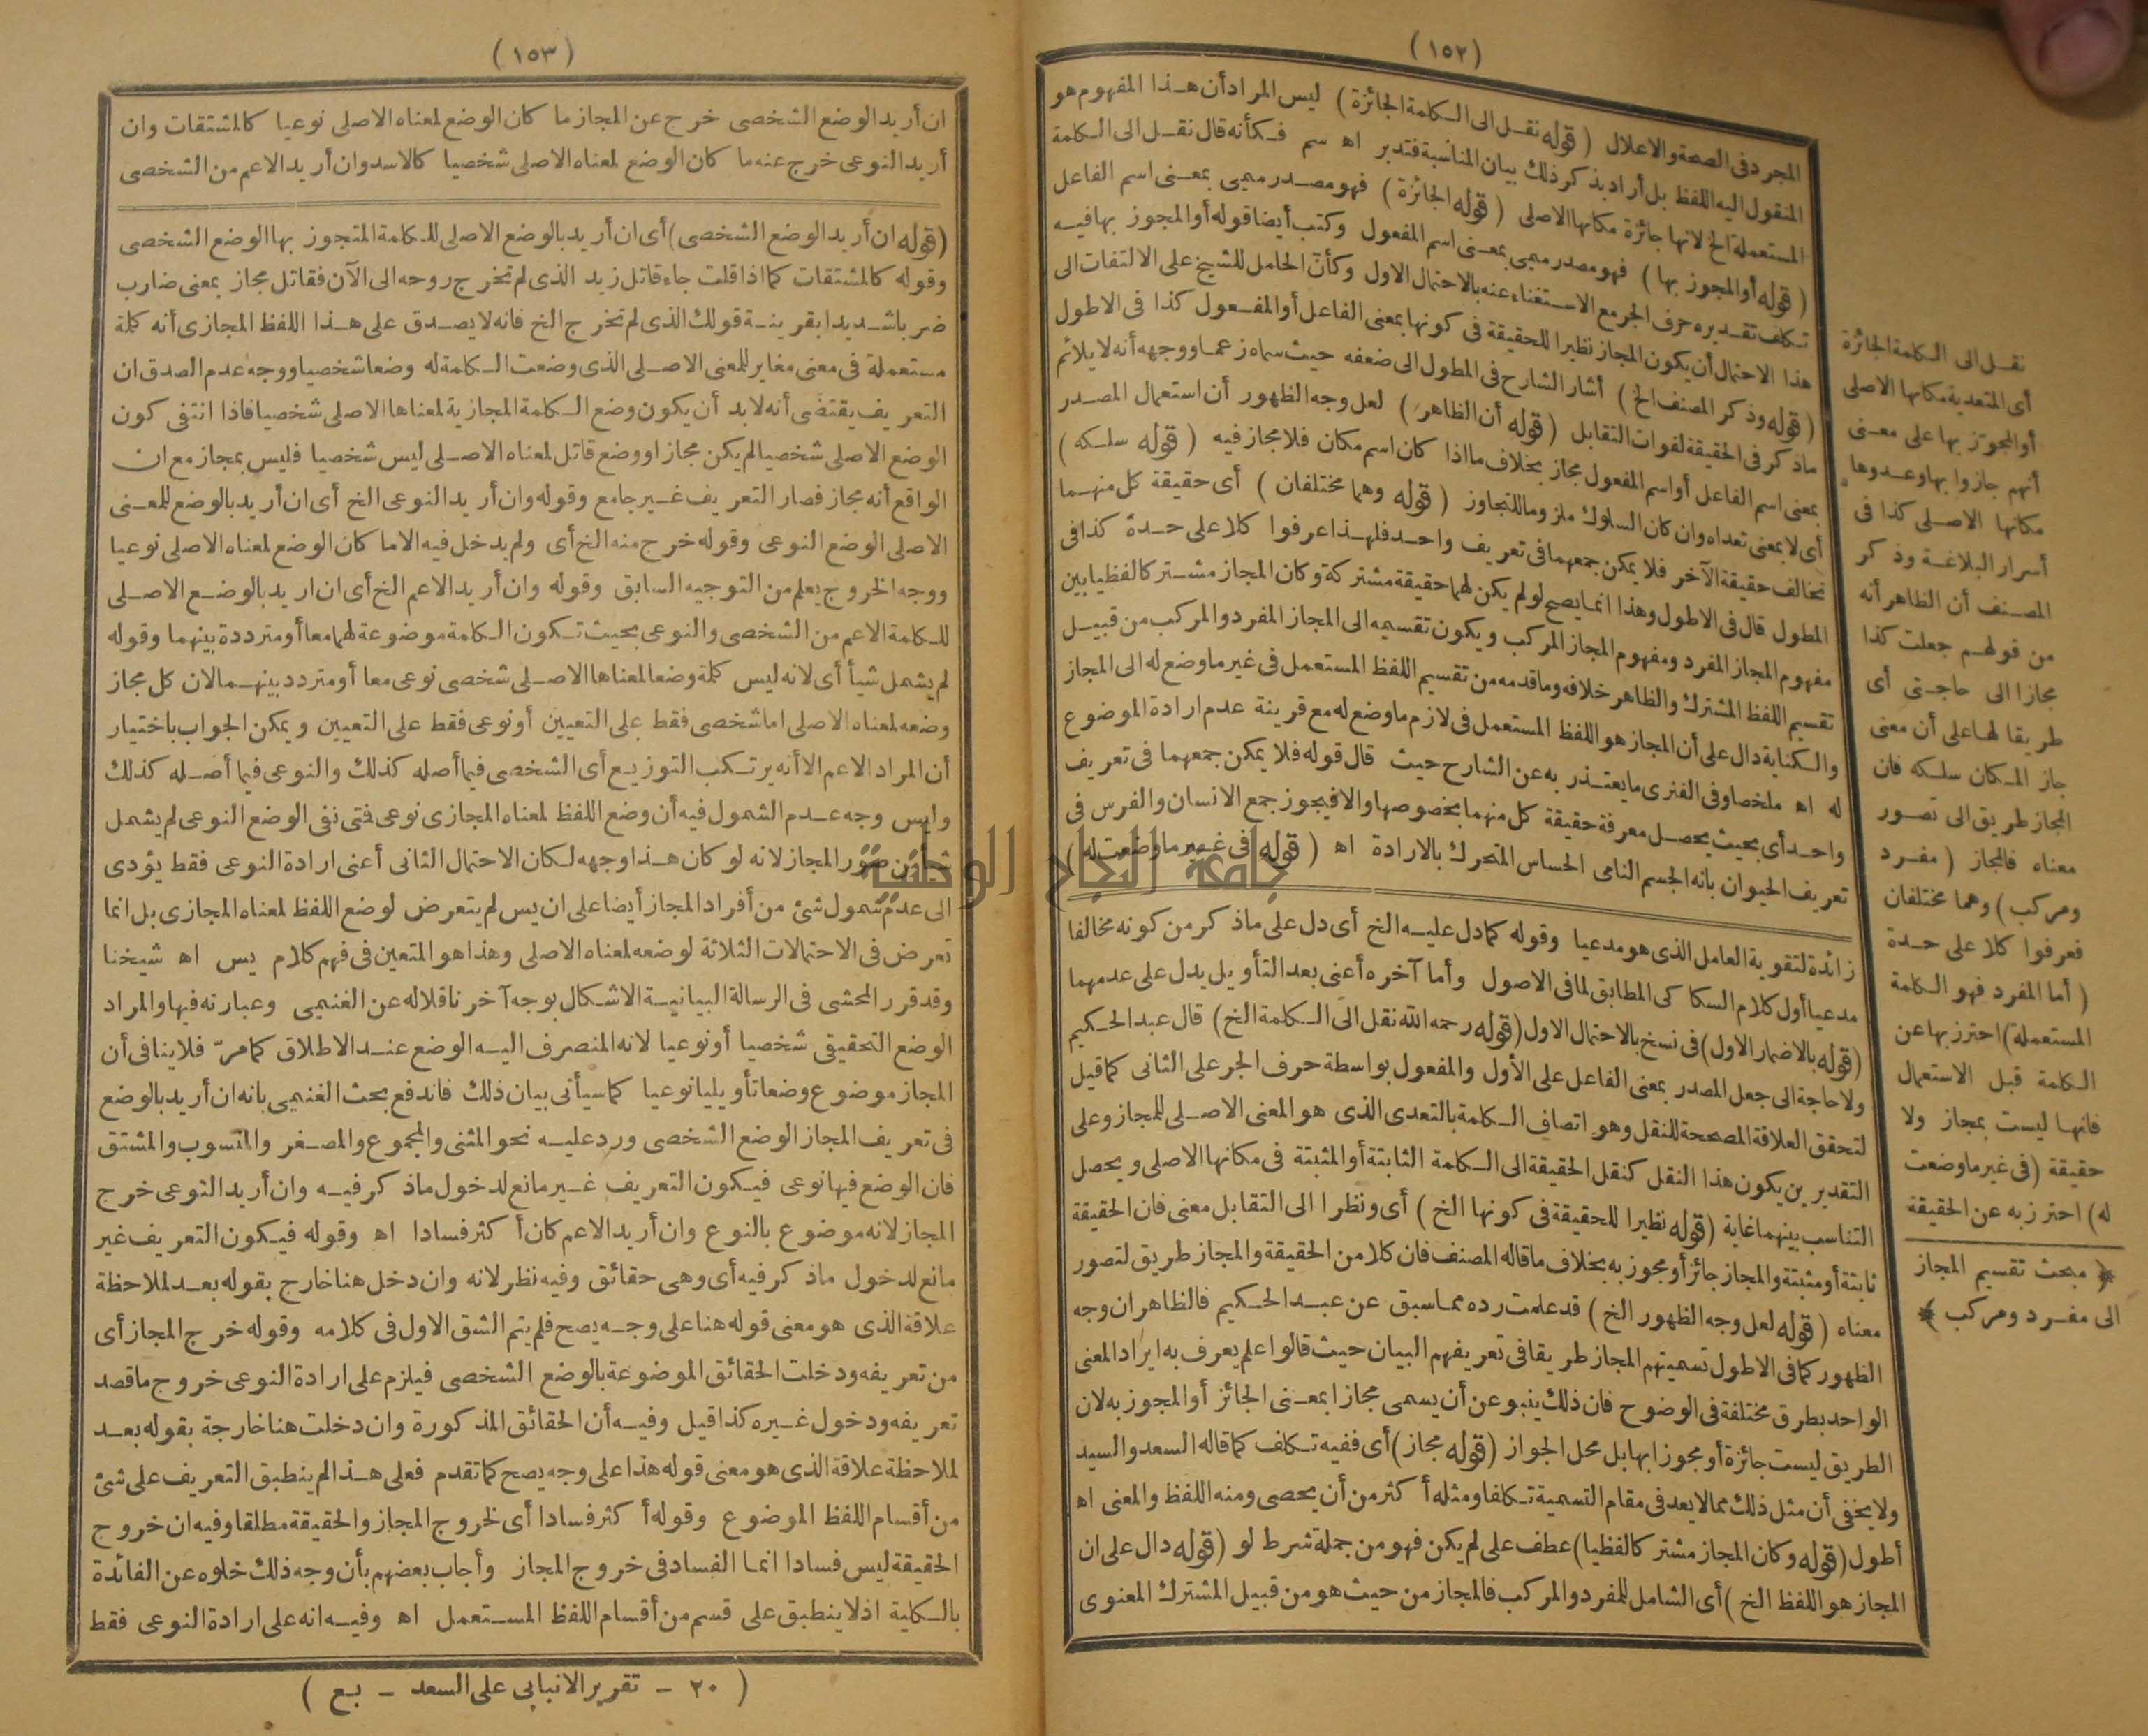 (١٥٢)
المجرد في الصحة والاعلال (قوله نقل الى الكلمة الجائزة) ليس المراد أن هذا المفهوم هو
المنقول اليه اللفظ بل أراد بذكر ذلك بيان المناسبة فتدبر اه سم فكأنه قال نقل الى الكلمة
المستعملة الخ لانها جائزة مكانها الاصلى (قوله الجائزة) فهو مصدر ميمى بمعنى اسم الفاعل
(قوله أو المجوز بها) فهو مصدر ميمى بمعنى اسم المفعول وكتب أيضا قوله أو المجوز بها فيه
تكلف تقديره حرف الجر مع الاستغناء عنه بالاحتمال الاول وكأن الحامل للشيخ على الالتفات الى
هذا الاحتمال أن يكون المجاز نظيرا للحقيقة في كونها بمعنى الفاعل أو المفعول كذا في الاطول
(قوله وذكر المصنف الخ) أشار الشارح في المطول الى ضعفه حيث سماه زعما ووجهه أنه لا يلائم
ماذكر في الحقيقة لفوات التقابل (قوله أن الظاهر) لعل وجه الظهور أن استعمال المصدر
بمعنى اسم الفاعل أو اسم المفعول مجاز بخلاف ما اذا كان اسم مكان فلا مجاز فيه (قوله سلكه)
أى لا بمعنى تعداه وان كان السلوك ملزوما للتجاوز (قوله وهما مختلفان) أى حقيقة كل منهما
تخالف حقيقة الآخر فلا يمكن جمعهما في تعريف واحد فلهذا عرفوا كلا على حدة كذا في
المطول قال في الاطول وهذا انما يصح لو لم يكن لهما حقيقة مشتركة وكان المجاز مشتركا لفظيا بين
مفهوم المجاز المفرد ومفهوم المجاز المركب ويكون تقسيمه الى المجاز المفرد والمركب من قبيل
تقسيم اللفظ المشترك والظاهر خلافه وما قدمه من تقسيم اللفظ المستعمل في غير ما وضع له الى المجاز
والكناية دال على أن المجاز هو اللفظ المستعمل في لازم ما وضع له مع قرينة عدم ارادة الموضوع
له اه ملخصا وفى الفنرى ما يعتذر به عن الشارح حيث قال قوله فلا يمكن جمعهما في تعريف
واحد أى بحيث يحصل معرفة حقيقة كل منهما بخصوصها والا فيجوز جمع الانسان والفرس في
تعريف الحيوان بانه الجسم النامى الحساس المتحرك بالارادة اه (قوله في غير ما وضعت له)
زائدة لتقوية العامل الذى هو مدعيا وقوله كما دل عليه الخ أى دل على ماذكر من كونه مخالفا
مدعيا أول كلام السكاكى المطابق لما في الاصول وأما آخره أعنى بعد التأويل يدل على عدمهما
(قوله بالاضمار الاول) في نسخ بالاحتمال الاول (قوله رحمه الله نقل الى الكلمة الخ) قال عبد الحكيم
ولا حاجة الى جعل المصدر بمعنى الفاعل على الأول والمفعول بواسطة حرف الجر على الثانى كما قيل
لتحقق العلاقة المصححة للنقل وهو اتصاف الكلمة بالتعدى الذى هو المعنى الاصلى للمجاز وعلى
التقديرين يكون هذا النقل كنقل الحقيقة الى الكلمة الثابتة أو المثبتة في مكانها الاصلى ويحصل
التناسب بينهما غاية (قوله نظيرا للحقيقة في كونها الخ) أى ونظرا الى التقابل معنى فان الحقيقة
ثابتة أو مثبتة والمجاز جائز أو مجوز به بخلاف ما قاله المصنف فان كلا من الحقيقة والمجاز طريق لتصور
معناه (قوله لعل وجه الظهور الخ) قد علمت رده مما سبق عن عبد الحكيم فالظاهر ان وجه
الظهور كما في الاطول تسميتهم المجاز طريقا في تعريفهم البيان حيث قالوا علم يعرف به ايراد المعنى
الواحد بطرق مختلفة في الوضوح فان ذلك ينبو عن أن يسمى مجازا بمعنى الجائز أو المجوز به لان
الطريق ليست جائزة أو مجوزا بها بل محل الجواز (قوله مجاز) أى ففيه تكلف كما قاله السعد والسيد
ولا يخفى أن مثل ذلك مما لا يعد في مقام التسمية تكلفا ومثله أكثر من أن يحصى ومنه اللفظ والمعنى اه
أطول (قوله وكان المجاز مشتركا لفظيا) عطف على لم يكن فهو من جملة شرط لو (قوله دال على ان
المجاز هو اللفظ الخ) أى الشامل للمفرد والمركب فالمجاز من حيث هو من قبيل المشترك المعنوى
نقل الى الكلمة الجائزة
أى المتعدية مكانها الاصلى
أو المجوّز بها على معنى
أنهم جازوا بها وعدوها
مكانها الاصلى كذا في
أسرار البلاغة وذكر
المصنف أن الظاهر أنه
من قولهم جعلت كذا
مجازا الى حاجتى أى
طريقا لها على أن معنى
جاز المكان سلكه فان
المجاز طريق الى تصور
معناه فالمجاز (مفرد
ومركب) وهما مختلفان
فعرفوا كلا على حدة
(أما المفرد فهو الكلمة
المستعملة) احترز بها عن
الكلمة قبل الاستعمال
فانها ليست بمجاز ولا
حقيقة (في غير ما وضعت
له) احترز به عن الحقيقة
﴿ مبحث تقسيم المجاز
الى مفرد ومركب ﴾
(١٥٣)
ان أريد الوضع الشخصى خرج عن المجاز ما كان الوضع لمعناه الاصلى نوعيا كالمشتقات وان
أريد النوعى خرج عنه ما كان الوضع لمعناه الاصلى شخصيا كالاسد وان أريد الاعم من الشخصى
(قوله ان أريد الوضع الشخصى) أى ان أريد بالوضع الاصلى للكلمة المتجوز بها الوضع الشخصى
وقوله كالمشتقات كما اذا قلت جاء قاتل زيد الذى لم تخرج روحه الى الآن فقاتل مجاز بمعنى ضارب
ضربا شديدا بقرينة قولك الذى لم تخرج الخ فانه لا يصدق على هذا اللفظ المجازى أنه كلمة
مستعملة في معنى مغاير للمعنى الاصلى الذى وضعت الكلمة له وضعا شخصيا ووجه عدم الصدق ان
التعريف يقتضى أنه لابد أن يكون وضع الكلمة المجازية لمعناها الاصلى شخصيا فاذا انتفى كون
الوضع الاصلى شخصيا لم يكن مجازا ووضع قاتل لمعناه الاصلى ليس شخصيا فليس بمجاز مع ان
الواقع أنه مجاز فصار التعريف غير جامع وقوله وان أريد النوعى الخ أى ان أريد بالوضع للمعنى
الاصلى الوضع النوعى وقوله خرج منه الخ أى ولم يدخل فيه الا ما كان الوضع لمعناه الاصلى نوعيا
ووجه الخروج يعلم من التوجيه السابق وقوله وان أريد الاعم الخ أى ان اريد بالوضع الاصلى
للكلمة الاعم من الشخصى والنوعى بحيث تكون الكلمة موضوعة لهما معا أو مترددة بينهما وقوله
لم يشمل شيأ أى لانه ليس كلمة وضعا لمعناها الاصلى شخصى نوعى معا أو متردد بينهما لان كل مجاز
وضعه لمعناه الاصلى اما شخصى فقط على التعيين أو نوعى فقط على التعيين ويمكن الجواب باختيار
أن المراد الاعم الا أنه يرتكب التوزيع أى الشخصى فيما أصله كذلك والنوعى فيما أصله كذلك
وليس وجه عدم الشمول فيه أن وضع اللفظ لمعناه المجازى نوعى فمتى نفى الوضع النوعى لم يشمل
شيأ من صور المجاز لانه لو كان هذا وجهه لكان الاحتمال الثانى أعنى ارادة النوعى فقط يؤدى
الى عدم شمول شئ من أفراد المجاز أيضا على ان يس لم يتعرض لوضع اللفظ لمعناه المجازى بل انما
تعرض في الاحتمالات الثلاثة لوضعه لمعناه الاصلى وهذا هو المتعين في فهم كلام يس اه شيخنا
وقد قرر المحشى في الرسالة البيانية الاشكال بوجه آخر ناقلا له عن الغنيمى وعبارته فيها والمراد
الوضع التحقيقى شخصيا أو نوعيا لانه المنصرف اليه الوضع عند الاطلاق كما مرّ فلا ينافى أن
المجاز موضوع وضعا تأويليا نوعيا كما سيأتى بيان ذلك فاندفع بحث الغنيمى بانه ان أريد بالوضع
في تعريف المجاز الوضع الشخصى ورد عليه نحو المثنى والمجموع والمصغر والمنسوب والمشتق
فان الوضع فيها نوعى فيكون التعريف غير مانع لدخول ماذكر فيه وان أريد النوعى خرج
المجاز لانه موضوع بالنوع وان أريد الاعم كان أكثر فسادا اه وقوله فيكون التعريف غير
مانع لدخول ماذكر فيه أى وهى حقائق وفيه نظر لانه وان دخل هنا خارج بقوله بعد لملاحظة
علاقة الذى هو معنى قوله هنا على وجه يصح فلم يتم الشق الاول في كلامه وقوله خرج المجاز أى
من تعريفه ودخلت الحقائق الموضوعة بالوضع الشخصى فيلزم على ارادة النوعى خروج ما قصد
تعريفه ودخول غيره كذا قيل وفيه أن الحقائق المذكورة وان دخلت هنا خارجة بقوله بعد
لملاحظة علاقة الذى هو معنى قوله هذا على وجه يصح كما تقدم فعلى هذا لم ينطبق التعريف على شئ
من أقسام اللفظ الموضوع وقوله أكثر فسادا أى لخروج المجاز والحقيقة مطلقا وفيه ان خروج
الحقيقة ليس فسادا انما الفساد في خروج المجاز وأجاب بعضهم بأن وجه ذلك خلوه عن الفائدة
بالكلية اذ لا ينطبق على قسم من أقسام اللفظ المستعمل اه وفيه انه على ارادة النوعى فقط
(٢٠ - تقرير الانبابى على السعد - بع)
جامعة النجاح الوطنية